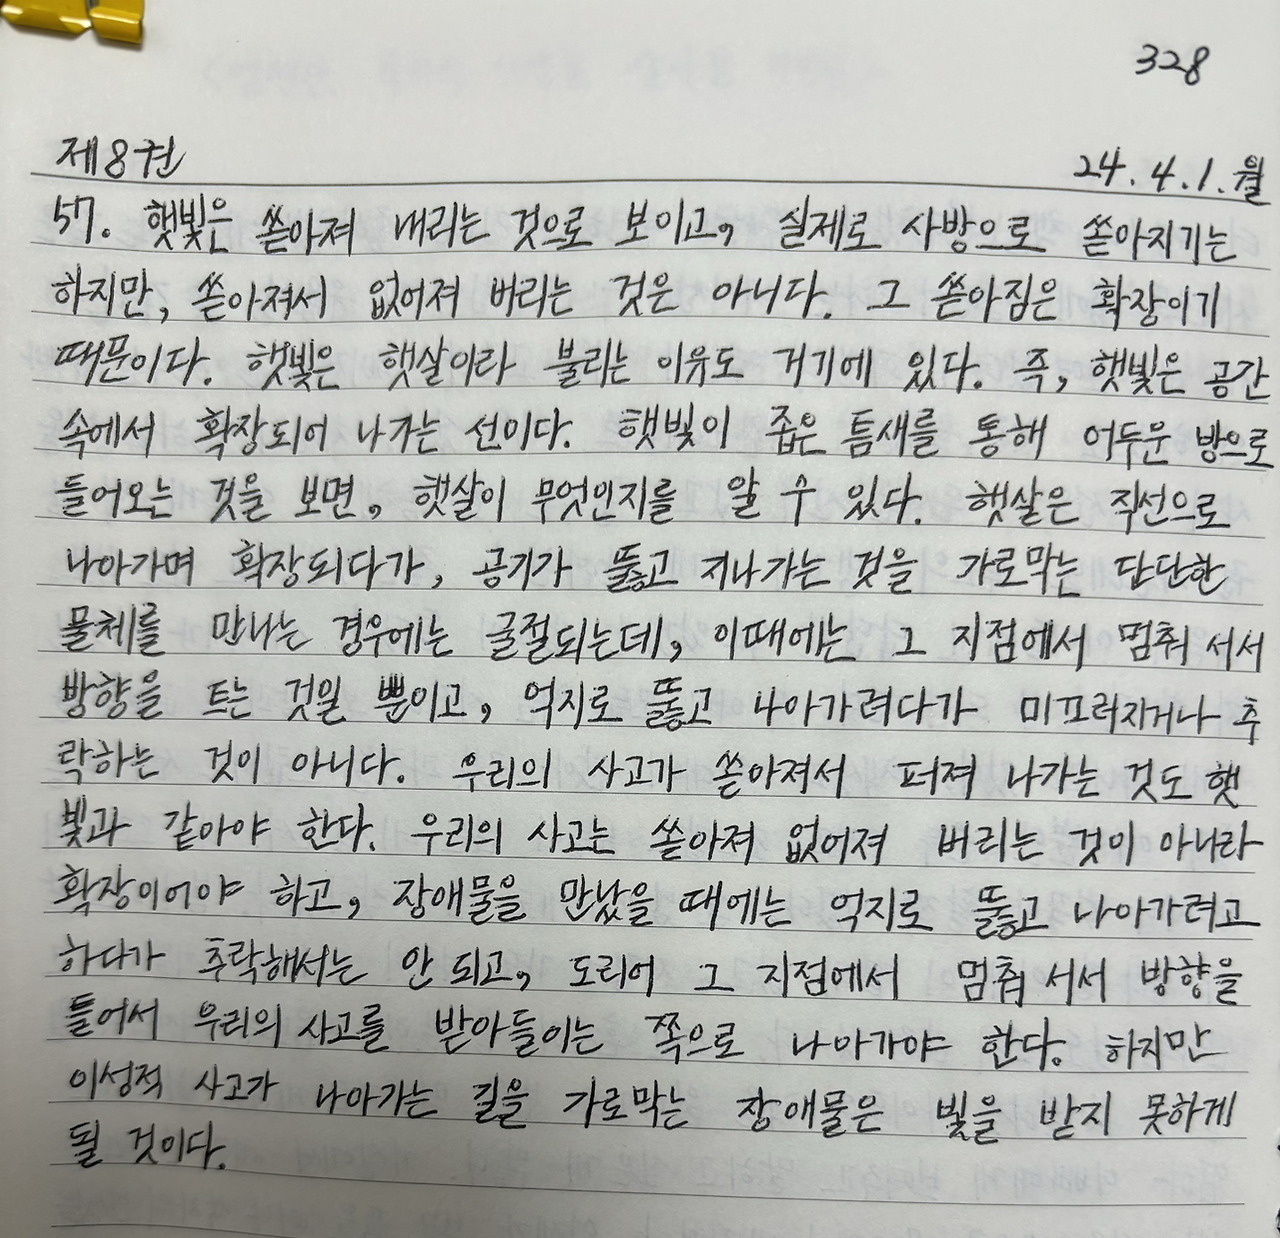 328
제8권 24.4.1.월
57. 햇빛은 쏟아져 내리는 것으로 보이고, 실제로 사방으로 쏟아지기는
하지만, 쏟아져서 없어져 버리는 것은 아니다. 그 쏟아짐은 확장이기
때문이다. 햇빛은 햇살이라 불리는 이유도 거기에 있다. 즉, 햇빛은 공간
속에서 확장되어 나가는 선이다. 햇빛이 좁은 틈새를 통해 어두운 방으로
들어오는 것을 보면, 햇살이 무엇인지를 알 수 있다. 햇살은 직선으로
나아가며 확장되다가, 공기가 뚫고 지나가는 것을 가로막는 단단한
물체를 만나는 경우에는 굴절되는데, 이때에는 그 지점에서 멈춰 서서
방향을 트는 것일 뿐이고, 억지로 뚫고 나아가려다가 미끄러지거나 추
락하는 것이 아니다. 우리의 사고가 쏟아져서 퍼져 나가는 것도 햇
빛과 같아야 한다. 우리의 사고는 쏟아져 없어져 버리는 것이 아니라
확장이어야 하고, 장애물을 만났을 때에는 억지로 뚫고 나아가려고
하다가 추락해서는 안 되고, 도리어 그 지점에서 멈춰 서서 방향을
틀어서 우리의 사고를 받아들이는 쪽으로 나아가야 한다. 하지만
이성적 사고가 나아가는 길을 가로막는 장애물은 빛을 받지 못하게
될 것이다.